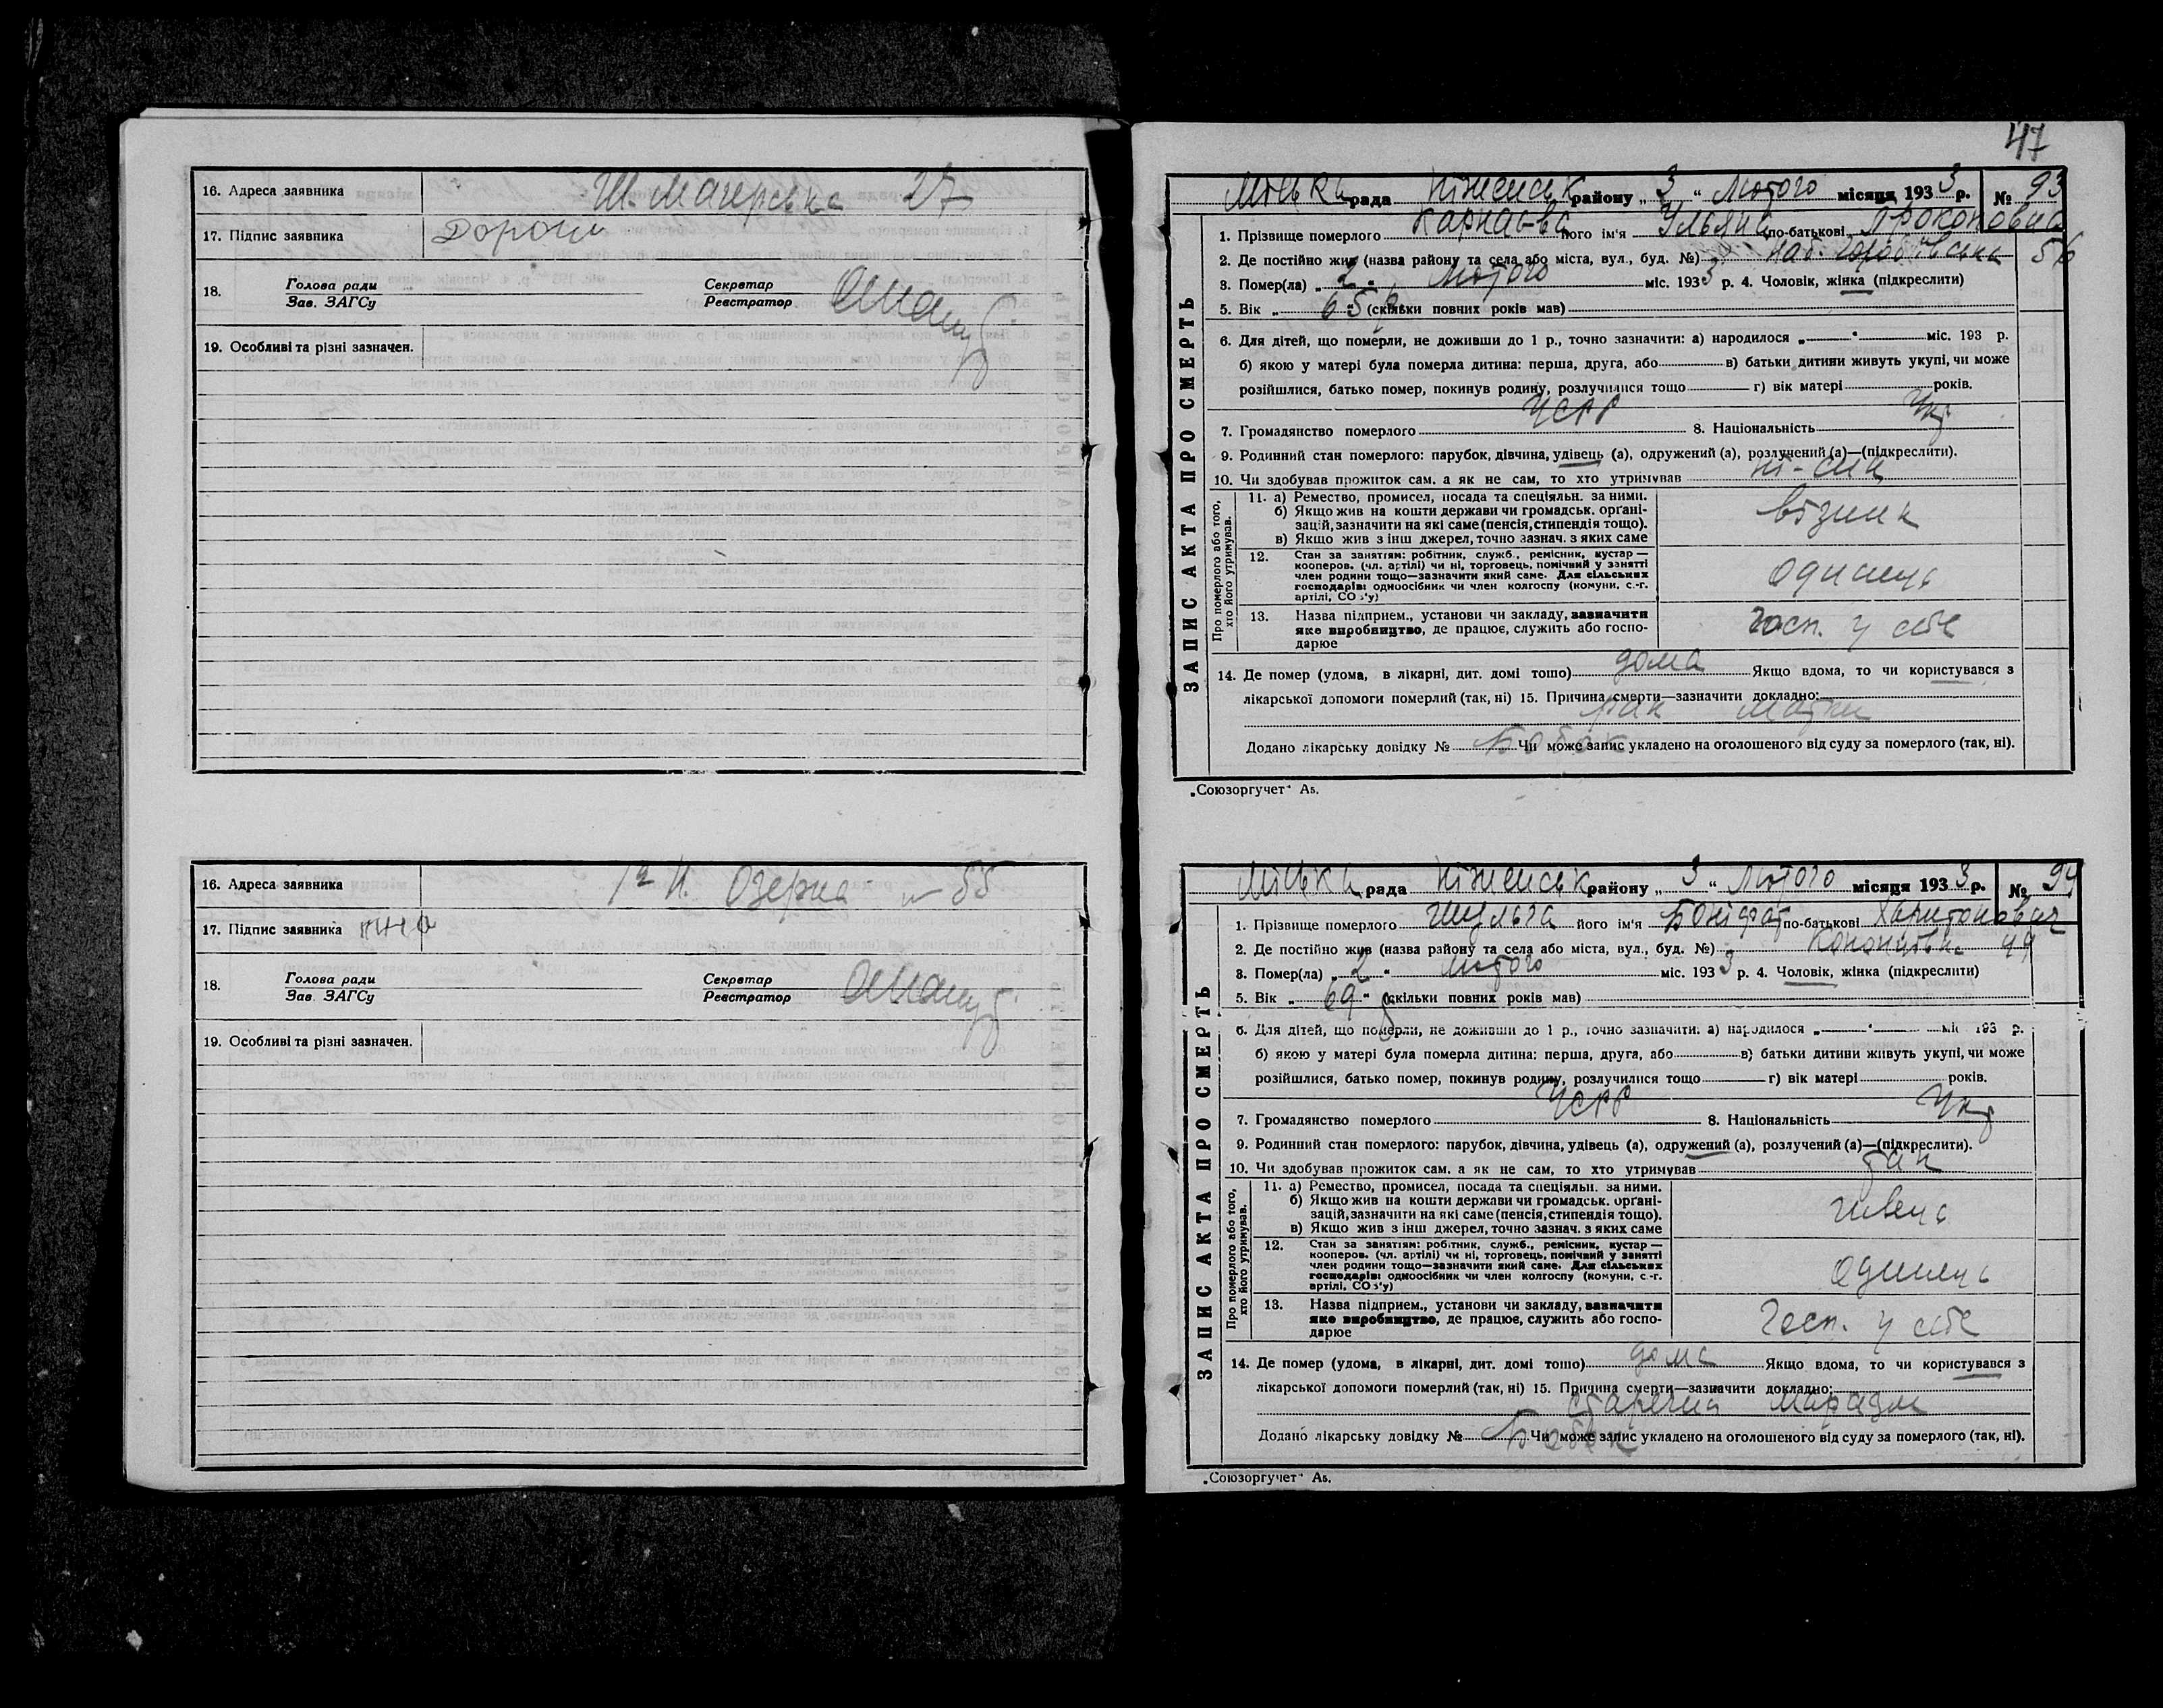 16. Адреса заявника Ш. Магерська 27
17. Підпис заявника
18. Голова ради Секретар
Зав. ЗАГСу Реєстратор
19. Особливі та різні зазначен.
16. Адреса заявника Озерна № 55
17. Підпис заявника
18. Голова ради Секретар
Зав. ЗАГСу Реєстратор
19. Особливі та різні зазначен.
47
ЗАПИС АКТА ПРО СМЕРТЬ
Міська рада Ніженськ району „ 3 “ Лютого місяця 1933 р. № 93
1. Прізвище померлого його ім'я Уляна по-батькові Проконовна
2. Де постійно жив (назва району та села або міста, вул., буд. №) 56
3. Помер(ла) „ 2 “ Лютого міс. 1933 р. 4. Чоловік, жінка (підкреслити)
5. Вік „ 65 “ р (скільки повних років мав)
6. Для дітей, що померли, не доживши до 1 р., точно зазначити: а) народилося „ “ міс. 193 р.
б) якою у матері була померла дитина: перша, друга, або в) батьки дитини живуть укупі, чи може
розійшлися, батько помер, покинув родину, розлучилися тощо г) вік матері років.
7. Громадянство померлого УСРР 8. Національність Укр
9. Родинний стан померлого: парубок, дівчина, удівець (а), одружений (а), розлучений (а)—(підкреслити).
10. Чи здобував прожиток сам, а як не сам, то хто утримував ні - син
Про померлого або того, хто його утримував.
11. а) Ремество, промисел, посада та спеціяльн. за ними.
б) Якщо жив на кошти держави чи громадськ. орґані-
зацій, зазначити на які саме (пенсія, стипендія тощо).
в) Якщо жив з інш джерел, точно зазнач. з яких саме
візник
12. Стан за занятіям: робітник, служб., ремісник, кустар —
кооперов. (чл. артілі) чи ні, торговець, помічний у занятті
член родини тощо—зазначити який саме. Для сільських
господарів: одноосібник чи член колгоспу (комуни, с.-г.
артілі, СОЗ'у)
одинець
13. Назва підприєм., установи чи закладу, зазначити
яке виробництво, де працює, служить або госпо-
дарює
госп. у себе
14. Де помер (удома, в лікарні, дит. домі тощо) дома Якщо вдома, то чи користувався з
лікарської допомоги померлий (так, ні) 15. Причина смерти—зазначити докладно:
рак матки
Додано лікарську довідку № Бобок Чи може запис укладено на оголошеного від суду за померлого (так, ні).
„Союзоргучет“ А5.
ЗАПИС АКТА ПРО СМЕРТЬ
Міська рада Ніженськ району „ 3 “ Лютого місяця 1933 р. № 94
1. Прізвище померлого Шульга його ім'я Боніфат по-батькові Харитонович
2. Де постійно жив (назва району та села або міста, вул., буд. №) 49
3. Помер(ла) „ 2 “ Лютого міс. 1933 р. 4. Чоловік, жінка (підкреслити)
5. Вік „ 69 “ р (скільки повних років мав)
6. Для дітей, що померли, не доживши до 1 р., точно зазначити: а) народилося „ “ міс 193 р.
б) якою у матері була померла дитина: перша, друга, або в) батьки дитини живуть укупі, чи може
розійшлися, батько помер, покинув родину, розлучилися тощо г) вік матері років.
7. Громадянство померлого УСРР 8. Національність Укр
9. Родинний стан померлого: парубок, дівчина, удівець (а), одружений (а), розлучений (а)—(підкреслити).
10. Чи здобував прожиток сам, а як не сам, то хто утримував так
Про померлого або того, хто його утримував.
11. а) Ремество, промисел, посада та спеціяльн. за ними.
б) Якщо жив на кошти держави чи громадськ. орґані-
зацій, зазначити на які саме (пенсія, стипендія тощо).
в) Якщо жив з інш джерел, точно зазнач. з яких саме
швець
12. Стан за занятіям: робітник, служб., ремісник, кустар —
кооперов. (чл. артілі) чи ні, торговець, помічний у занятті
член родини тощо—зазначити який саме. Для сільських
господарів: одноосібник чи член колгоспу (комуни, с.-г.
артілі, СОЗ'у)
одинець
13. Назва підприєм., установи чи закладу, зазначити
яке виробництво, де працює, служить або госпо-
дарює
Госп. у себе
14. Де помер (удома, в лікарні, дит. домі тощо) дома Якщо вдома, то чи користувався з
лікарської допомоги померлий (так, ні) 15. Причина смерти—зазначити докладно:
старечий маразм
Додано лікарську довідку № Бобок Чи може запис укладено на оголошеного від суду за померлого (так, ні).
„Союзоргучет“ А5.